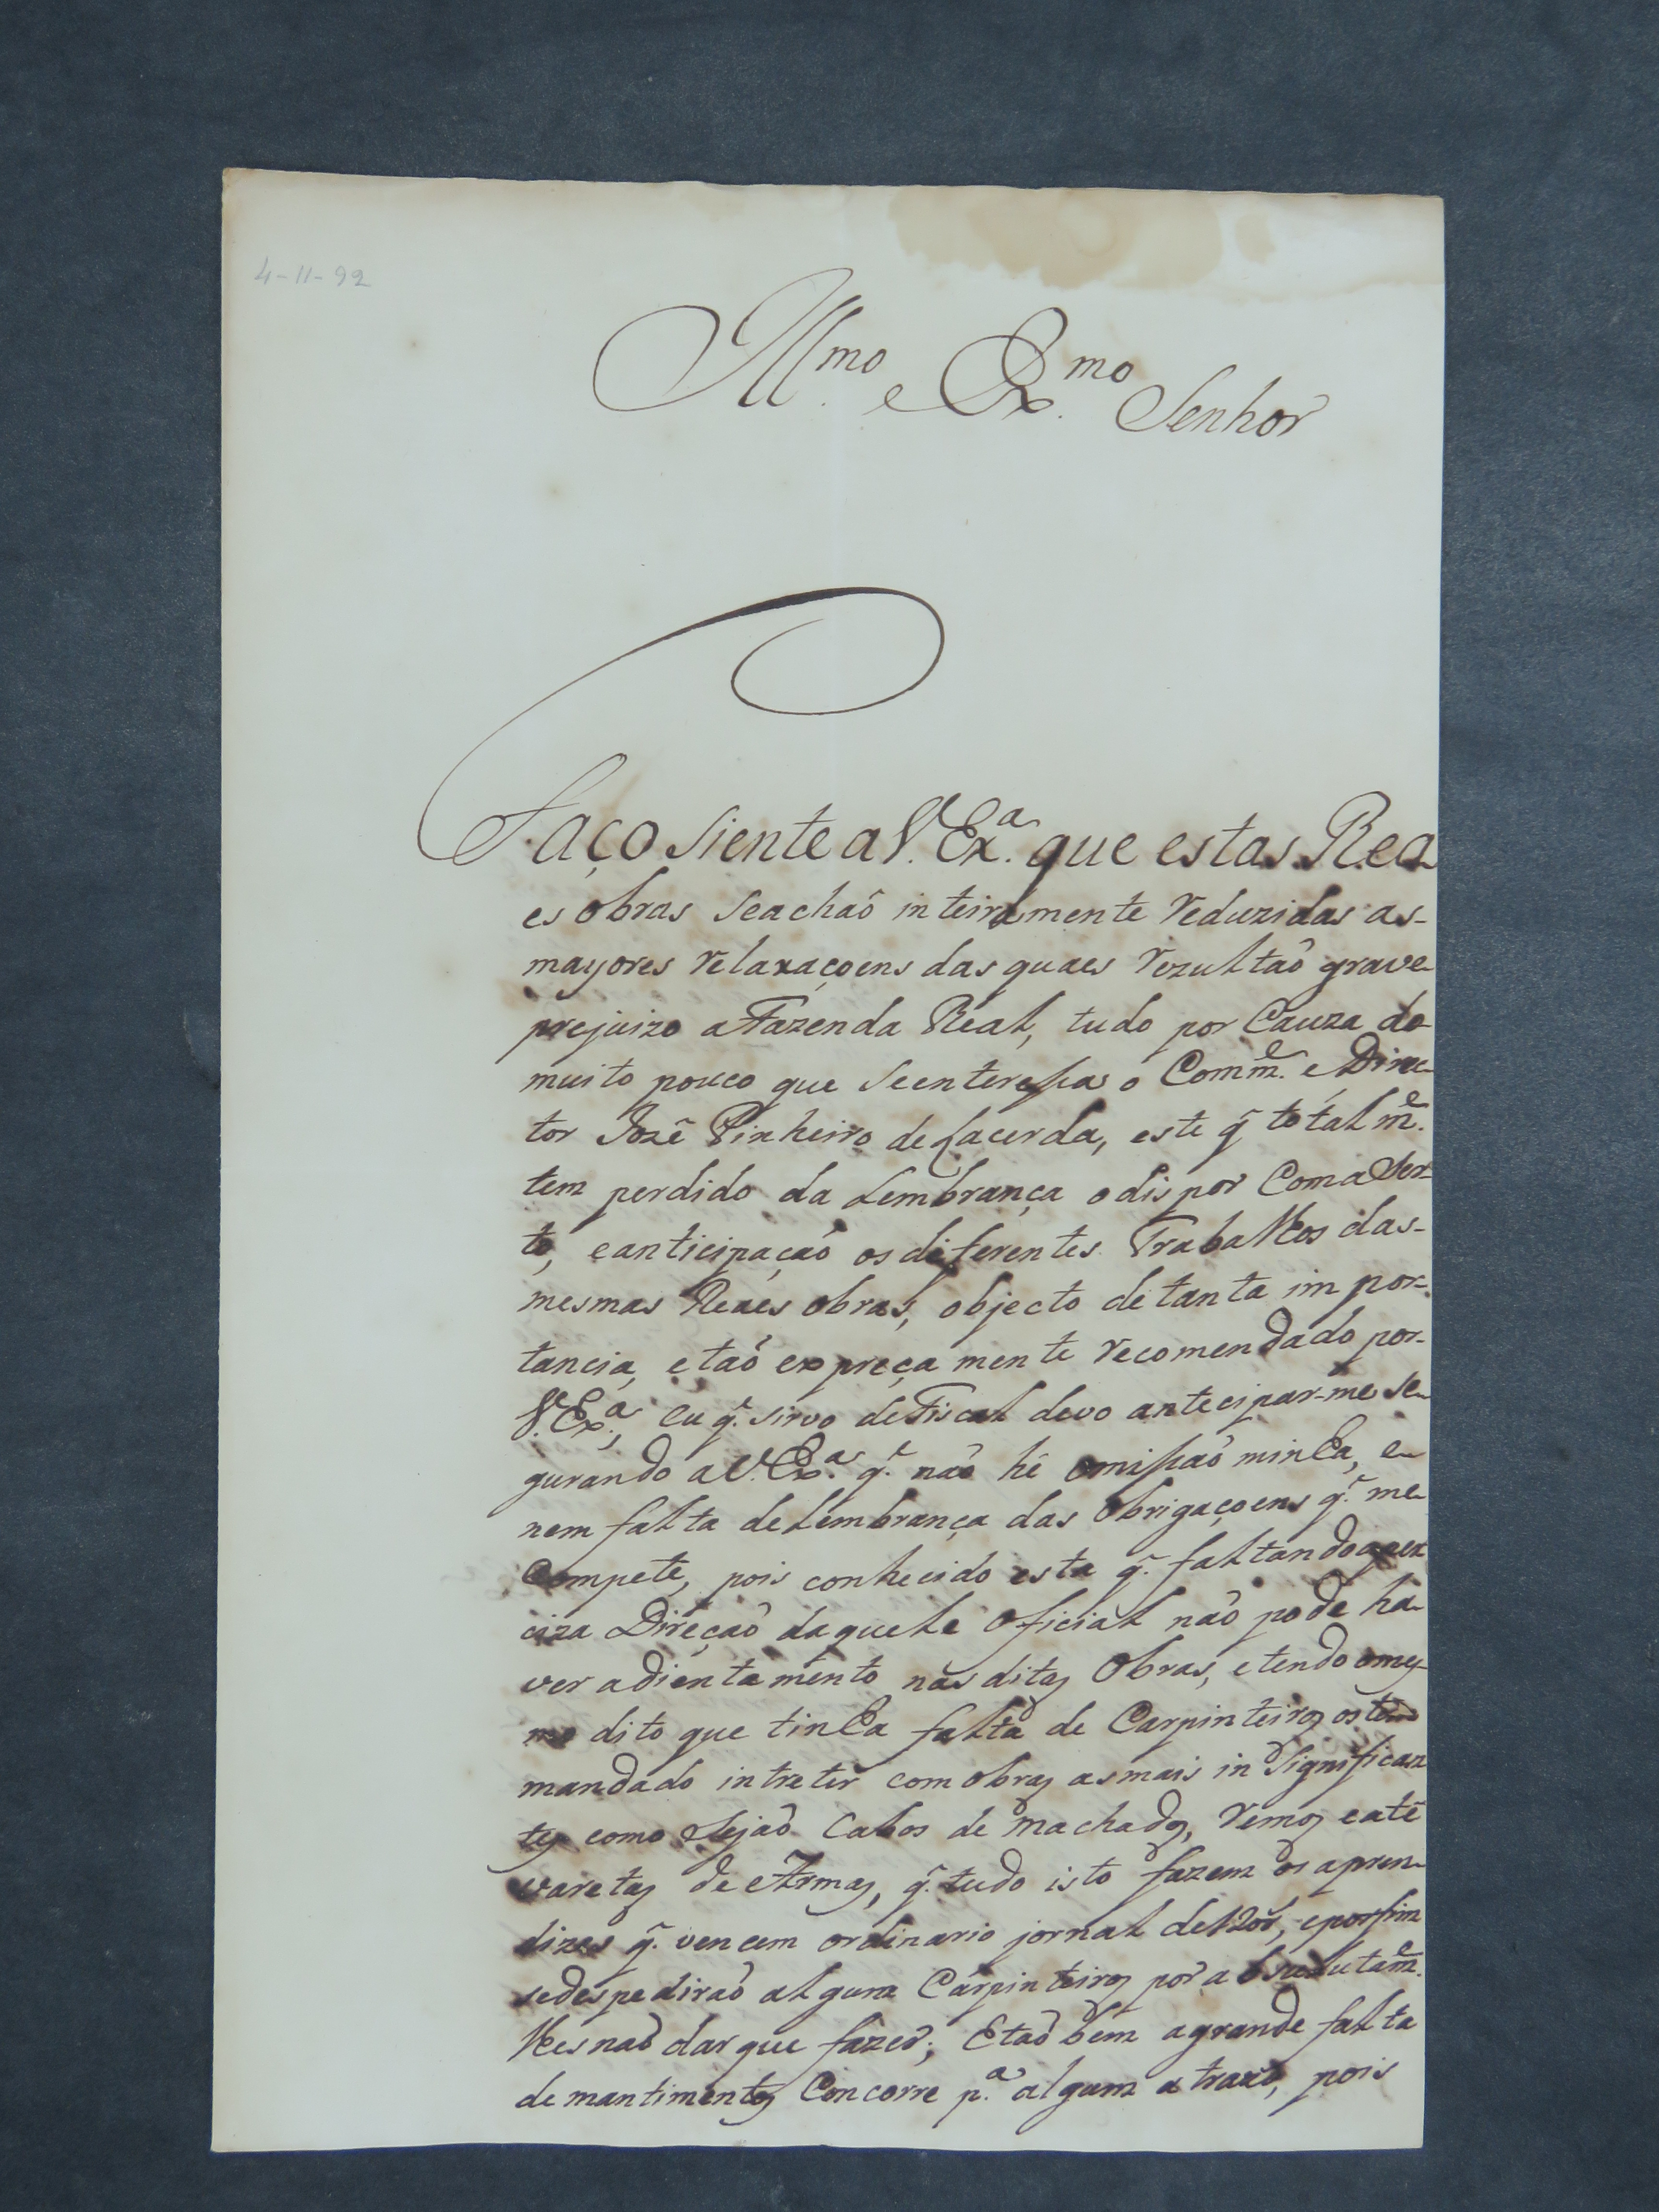 4-11-92
Ill.mo e Ex.mo Senhor
Faço siente a V. Ex.a que estas Rea
es obras seachaõ inteiramente reduzidas as-
mayores relaxaçoens das quaes rezultaõ grave
prejuizo a Fazenda Real, tudo por Cauza do
muito pouco que seenteressa o Comm.e e Direc-
tor Jozê Pinheiro de Lacerda, este q̃ totalm.e
tem perdido da Lembrança o dispor Coma Ser-
to, eanticipaçaõ os diferentes Trabalhos das-
mesmas Reaes obras, objecto detanta impor-
tancia, etaõ expreçamente recomendado por-
V. Ex.a, eu q̃. sirvo deFiscal devo antecipar-me se-
gurando a V. Ex.a q̃. naõ hê omissaõ minha, e
nem falta deLembrança das Obrigaçoens q̃. me
Compete, pois conhecido esta q̃. faltando apre
ciza Direçaõ daquele Oficial naõ pode ha-
ver adientamento nas ditas Obras, etendo omes-
mo dito que tinha falta de Carpinteiros os tem
mandado intreter com obras asmais insignifican
tes como sejaõ Cabos de machados, remos eatê
varetas de Armas, q̃. tudo isto fazem os apren-
dizes q̃. vencem ordinario jornal de 120r, eporfim
sedespediraõ algum Carpinteiros por absulutam.e
lhes naõ dar que fazer; Etaõ bem agrande falta
de mantimentos Concorre p.a algum atrazo, pois